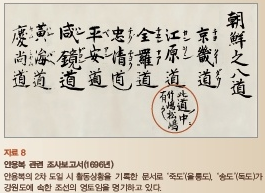 朝鮮之八道
京畿道
江原道
此道中
竹嶋松嶋
有之
全羅道
忠情道
平安道
咸鏡道
黄海道
慶尚道
자료 8
안용복 관련 조사보고서(1696년)
안용복의 2차 도일 시 활동상황을 기록한 문서로 '죽도'(울릉도), '송도'(독도)가
강원도에 속한 조선의 영토임을 명기하고 있다.